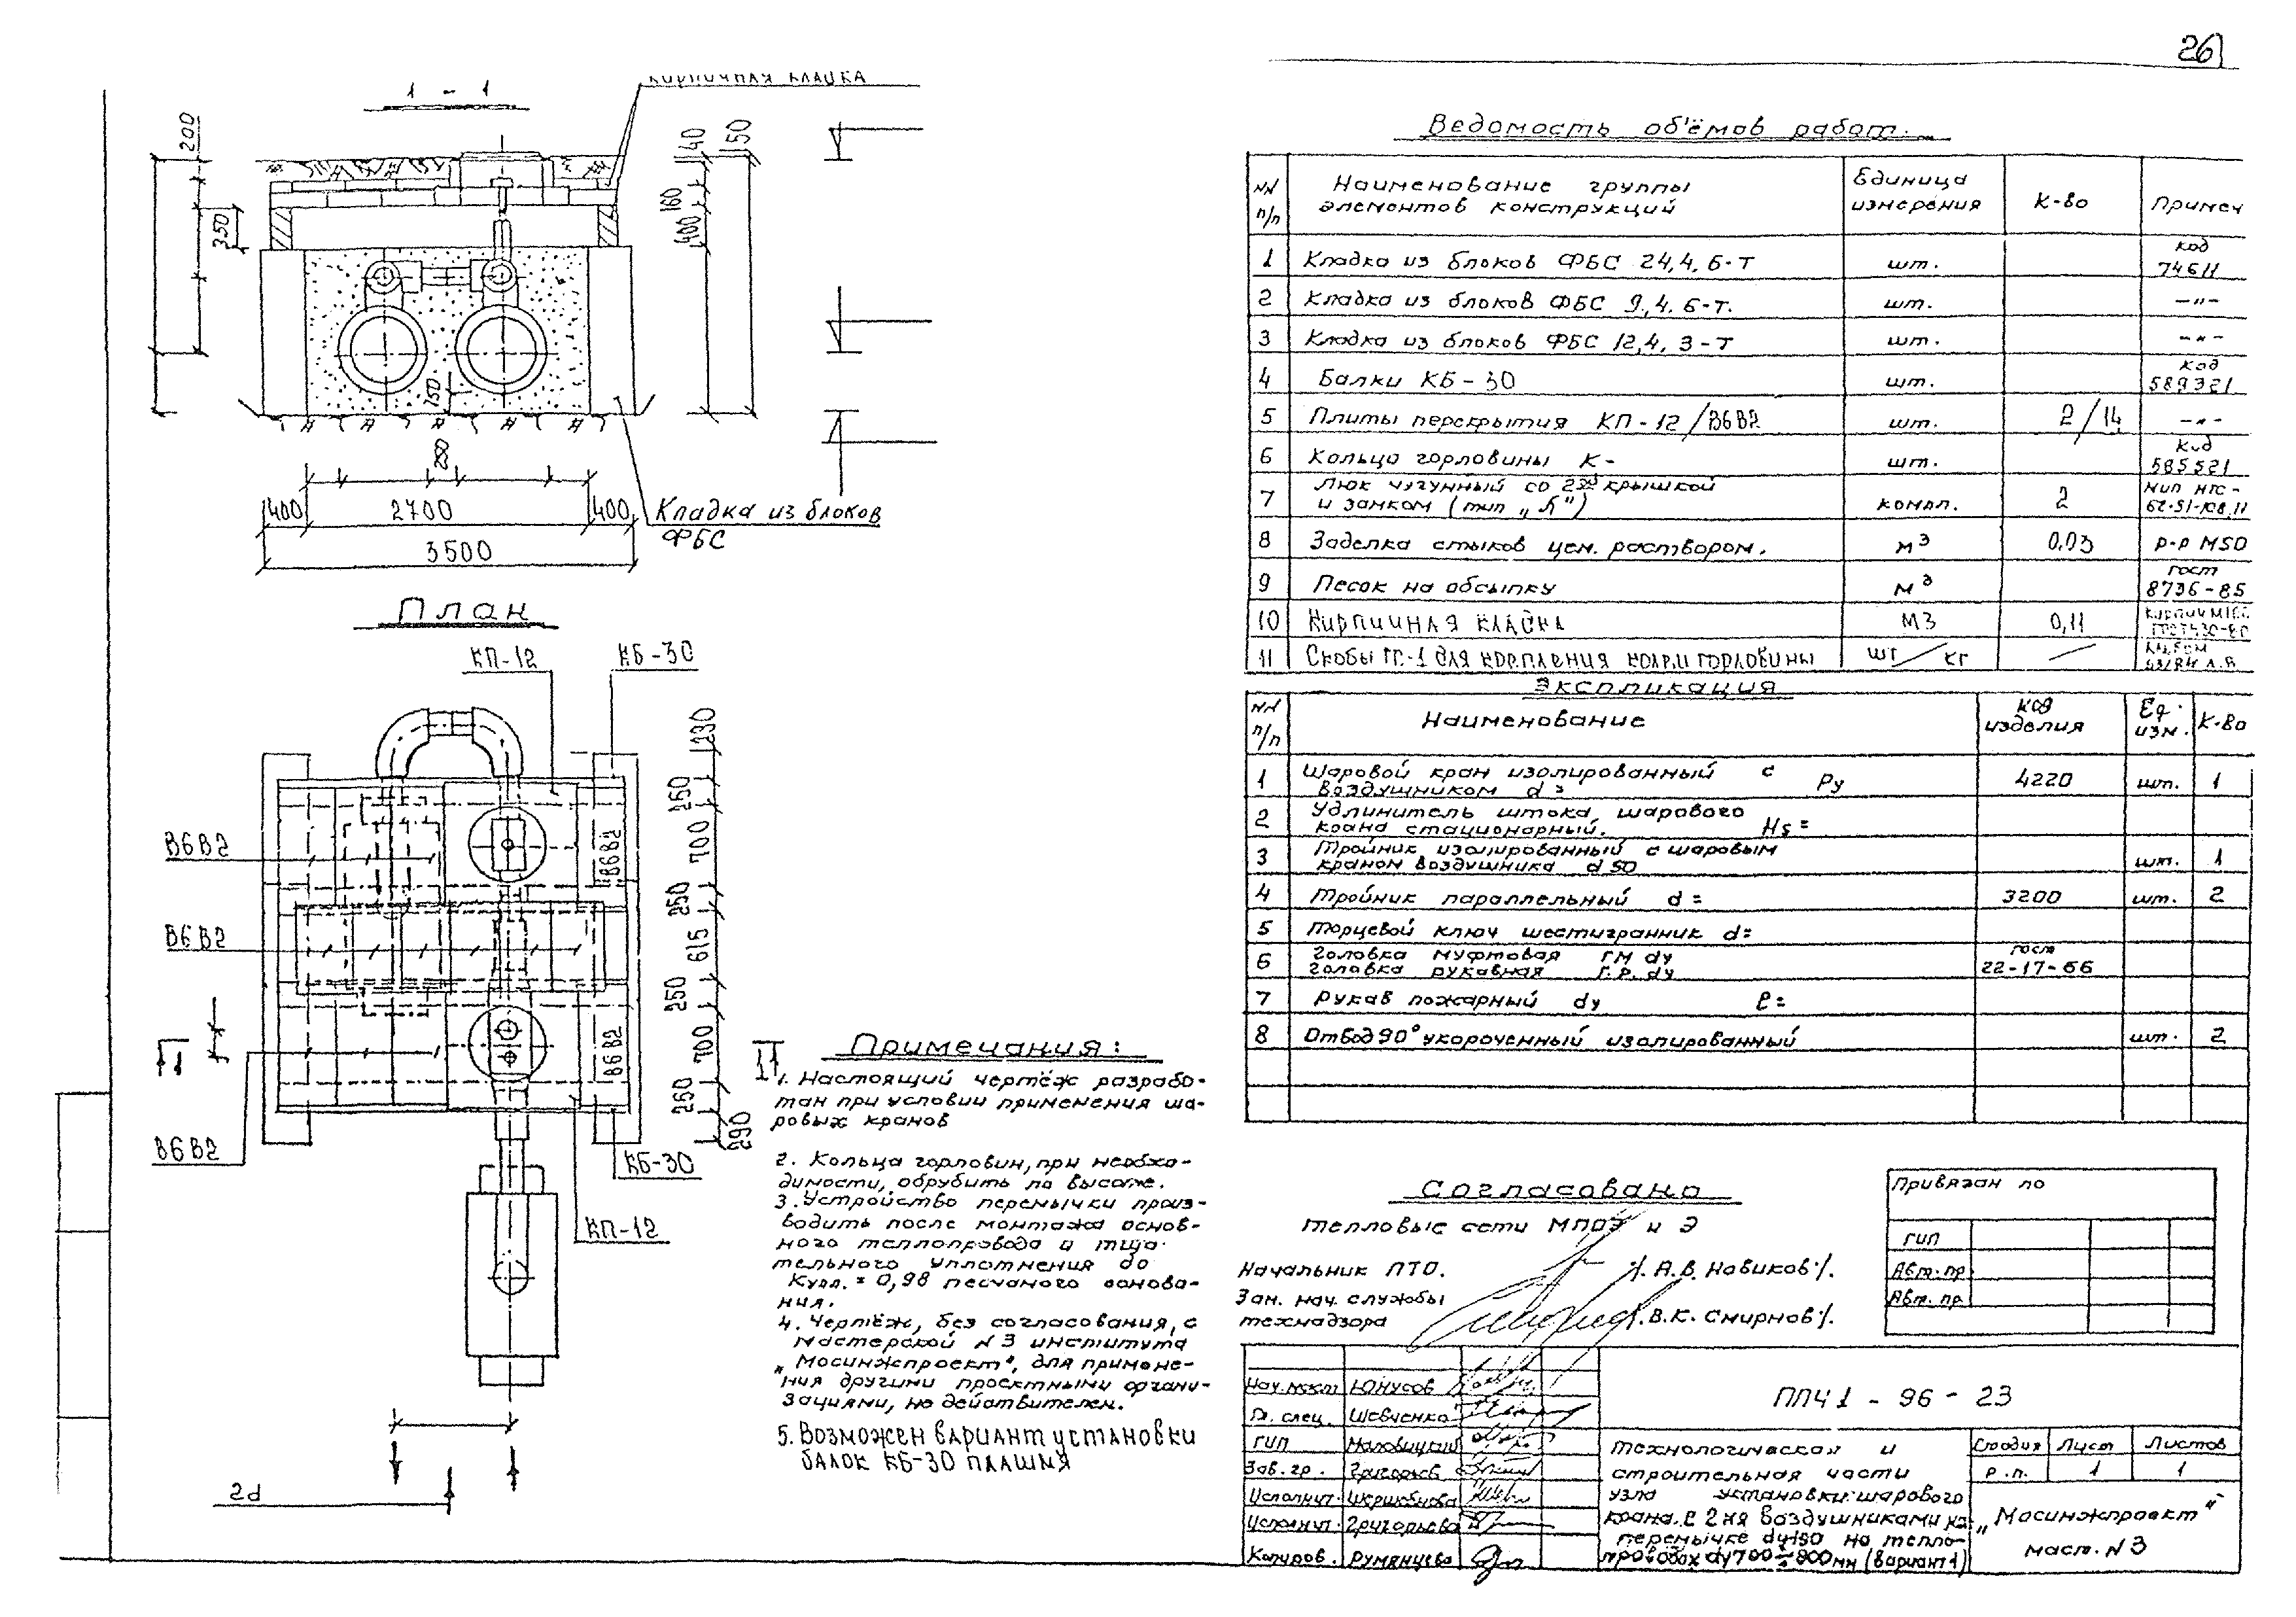 26
1 - 1
КИРПИЧНАЯ КЛАДКА
200
350
140
150
160
400
150
400
2700
400
3500
Кладка из блоков
ФБС
План
КП-12
КБ-30
В6В2
В6В2
В6В2
В6В2
В6В2
КБ-30
КП-12
290
250
700
250
615
250
700
250
290
1
1
2d
Примечания:
1. Настоящий чертёж разрабо-
тан при условии применения ша-
ровых кранов
2. Кольца горловин, при необхо-
димости, обрубить по высоте.
3. Устройство перемычки произ-
водить после монтажа основ-
ного теплопровода и тща-
тельного уплотнения до
Купл. = 0,98 песчаного основа-
ния.
4. Чертёж, без согласования, с
мастерской N 3 института
„Мосинжпроект", для примене-
ния другими проектными органи-
зациями, не действителен.
5. Возможен вариант установки
балок КБ-30 плашмя
Ведомость об'ёмов работ.
NN п/п Наименование группы элементов конструкций Единица измерения К-во Примеч
1 Кладка из блоков ФБС 24,4,6-Т шт. код 74611
2 Кладка из блоков ФБС 9,4.6-т. шт. —"—
3 Кладка из блоков ФБС 12,4,3-Т шт. —"—
4 Балки КБ-30 шт. код 589321
5 Плиты перекрытия КП-12/В6В2 шт. 2/14 —"—
6 Кольцо горловины К- шт. Код 585521
7 Люк чугунный со 2ой крышкой и замком (тип „Л") компл. 2
8 Заделка стыков цем. раствором. м3 0,03 р-р М50
9 Песок на обсыпку м3 гост 8736-85
10 Кирпичная кладка М3 0,11
11 Скобы ГС-1 для крепления колец горловины шт/кг —
Экспликация
NN п/п Наименование код изделия Ед. изм. К-во
1 Шаровой кран изолированный с воздушником d= Ру 4220 шт. 1
2 Удлинитель штока шарового крана стационарный. Hs=
3 Тройник изолированный с шаровым краном воздушника d 50 шт. 1
4 Тройник параллельный d= 3200 шт. 2
5 Торцевой ключ шестигранник d=
6 Головка муфтовая ГМ dy гост
головка рукавная Г.Р. dy 22-17-66
7 Рукав пожарный dy ℓ=
8 Отвод 90° укороченный изолированный шт. 2
Согласовано
Тепловые сети МПОЭ и Э
Начальник ПТО. /. А.В. Новиков /.
Зам. нач. службы
технадзора /. В.К. Смирнов /.
Привязан по
ГИП
Авт. пр.
Авт. пр.
Нач. маст Юнусов
Гл. спец. Шевченко
ГИП
Зав. гр. Григорьев
Исполнит.
Исполнит. Григорьева
Копиров. Румянцева
ППЧ1 - 96 - 23
Технологическая и
строительная части
узла установки шарового
крана с 2мя воздушниками на
перемычке dy150 на тепло-
проводах dy700÷800мм (вариант 1)
Стадия Лист Листов
Р.п. 1 1
„Мосинжпроект"
маст. N 3